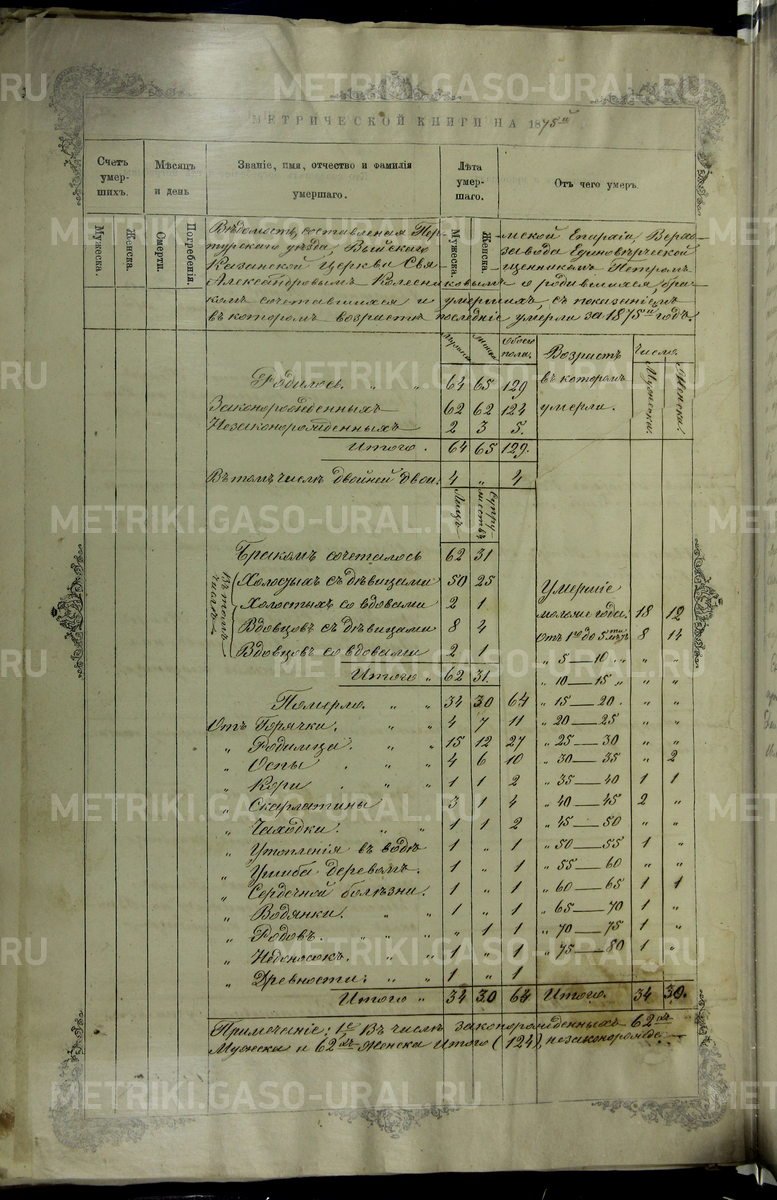 МЕТРИЧЕСКОЙ КНИГИ НА 1875й
Счет умерших.
Мѣсяц и день
Званіе, имя, отчество и фамилія умершаго.
Лѣта умершаго.
Отъ чего умеръ.
Мужеска.
Женска.
Смерти.
Погребенія.
Мужеска.
Женска.
Вѣдомость, составленная Пермской Епархіи, Верхотурскаго уѣзда, Выйскаго завода Единовѣрческой
Казанской Церкви Священникомъ Петромъ
Александровымъ Колесниковымъ о родившихся, бракомъ сочетавшихся и умершихъ, съ показаніемъ
въ которомъ возрастѣ послѣдніе умерли за 1875й годъ.
Мужеска Женска Обоего пола.
Родилось " " 64 65 129
Законорожденныхъ 62 62 124
Незаконорожденныхъ 2 3 5.
Итого. 64 65 129.
Въ томъ числѣ двойней двои: 4 " 4
Лицъ Супружествъ
Бракомъ сочеталось 62 31
Въ томъ числѣ
Холостыхъ съ дѣвицами 50 25
Холостыхъ со вдовами 2 1
Вдовцовъ съ дѣвицами 8 4
Вдовцовъ со вдовами 2 1
Итого " 62 31.
Померло. " " 34 30 64
Отъ Горячки. " " 4 7 11
" Родимца. " " 15 12 27
" Оспы . " " 4 6 10
" Кори . " " 1 1 2
" Скарлатины " 3 1 4
" Чахотки. " " 1 1 2
" Утопленія въ водѣ 1 " 1
" Ушиба деревомъ. 1 " 1
" Сердечной болѣзни. 1 " 1
" Водянки. " " 1 " 1
" Родовъ. " " " " 1 1
" Недоносокъ. " " 1 " 1
" Древности. " " 1 " 1
Итого " 34 30 64
Возрастъ въ которомъ умерли.
Число.
Мужеска.
Женска.
Умершіе
моложе года. 18 12
Отъ 1го до 5ти 8 14
" 5—10 " " "
" 10—15 " " "
" 15—20. " "
" 20—25 " "
" 25—30 " "
" 30—35 " 2
" 35—40 1 1
" 40—45 2 "
" 45—50 " "
" 50—55 1 "
" 55—60 " "
" 60—65 1 1
" 65—70 1 "
" 70—75 1 "
" 75—80 1 "
Итого. 34 30.
Примѣчаніе: 1е Въ числѣ законорожденныхъ 62хъ
Мужеска и 62хъ Женска Итого (124), незаконорожде-
METRIKI.GASO-URAL.RU